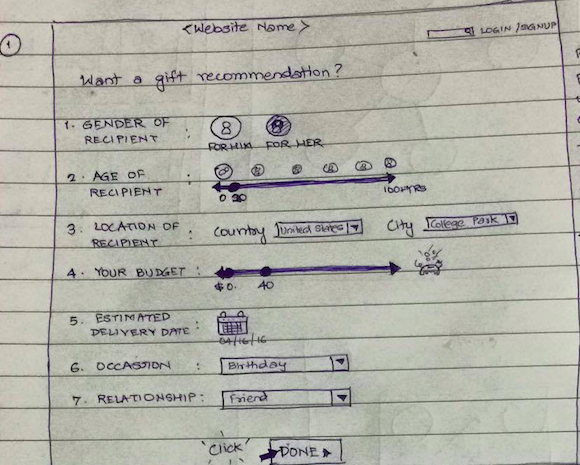 1
<Website Name>
LOGIN / SIGNUP
Want a gift recommendation?
1. GENDER OF RECIPIENT :
FOR HIM FOR HER
2. AGE OF RECIPIENT :
0 20 100YRS
3. LOCATION OF RECIPIENT : Country United States City College Park
4. YOUR BUDGET :
$0. 40
5. ESTIMATED DELIVERY DATE :
04/16/16
6. OCCASSION : Birthday
7. RELATIONSHIP : Friend
'Click' DONE